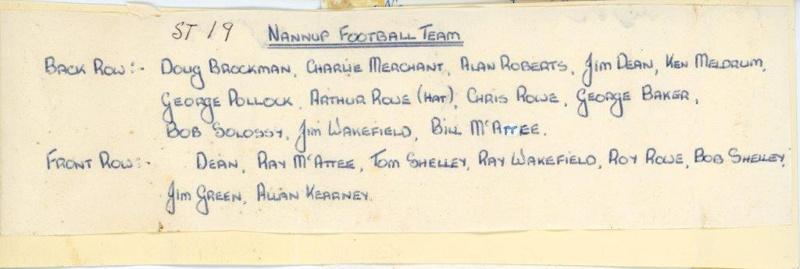 ST 19 NANNUP FOOTBALL TEAM
BACK ROW:- DOUG BROCKMAN, CHARLIE MERCHANT, ALAN ROBERTS, JIM DEAN, KEN MELDRUM,
GEORGE POLLOCK, ARTHUR ROWE (HAT), CHRIS ROWE, GEORGE BAKER,
BOB SOLOSSY, JIM WAKEFIELD, BILL McATTEE.
FRONT ROW:- DEAN, RAY McATTEE, TOM SHELLEY, RAY WAKEFIELD, ROY ROWE, BOB SHELLEY,
JIM GREEN, ALLAN KEARNEY.